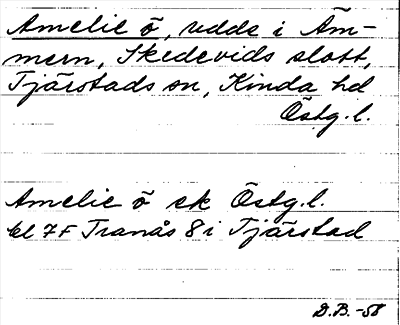 Amelie ö, udds i Äm-
mern, Skedevids slott,
Tjärstads sn, Kinda hd
Östg.l.
Amelie ö ek Östg.l.
bl 7F Tranås 8 i Tjärstad
D.B.-58